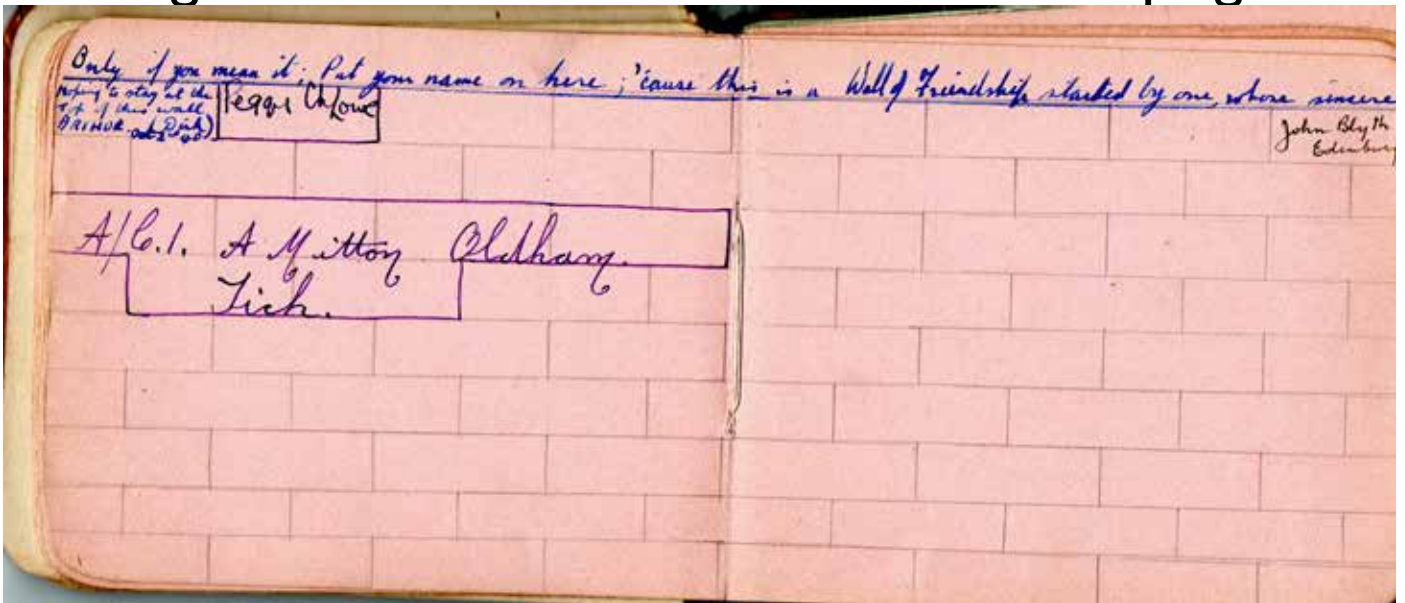 Only if you mean it; Put your name on here; 'cause this is a Wall of Friendship started by one, whose sincere
hoping to stay at the
top of this wall
Peggy
John Blyth
A/C.1. A Mitton Oldham.
Tich.